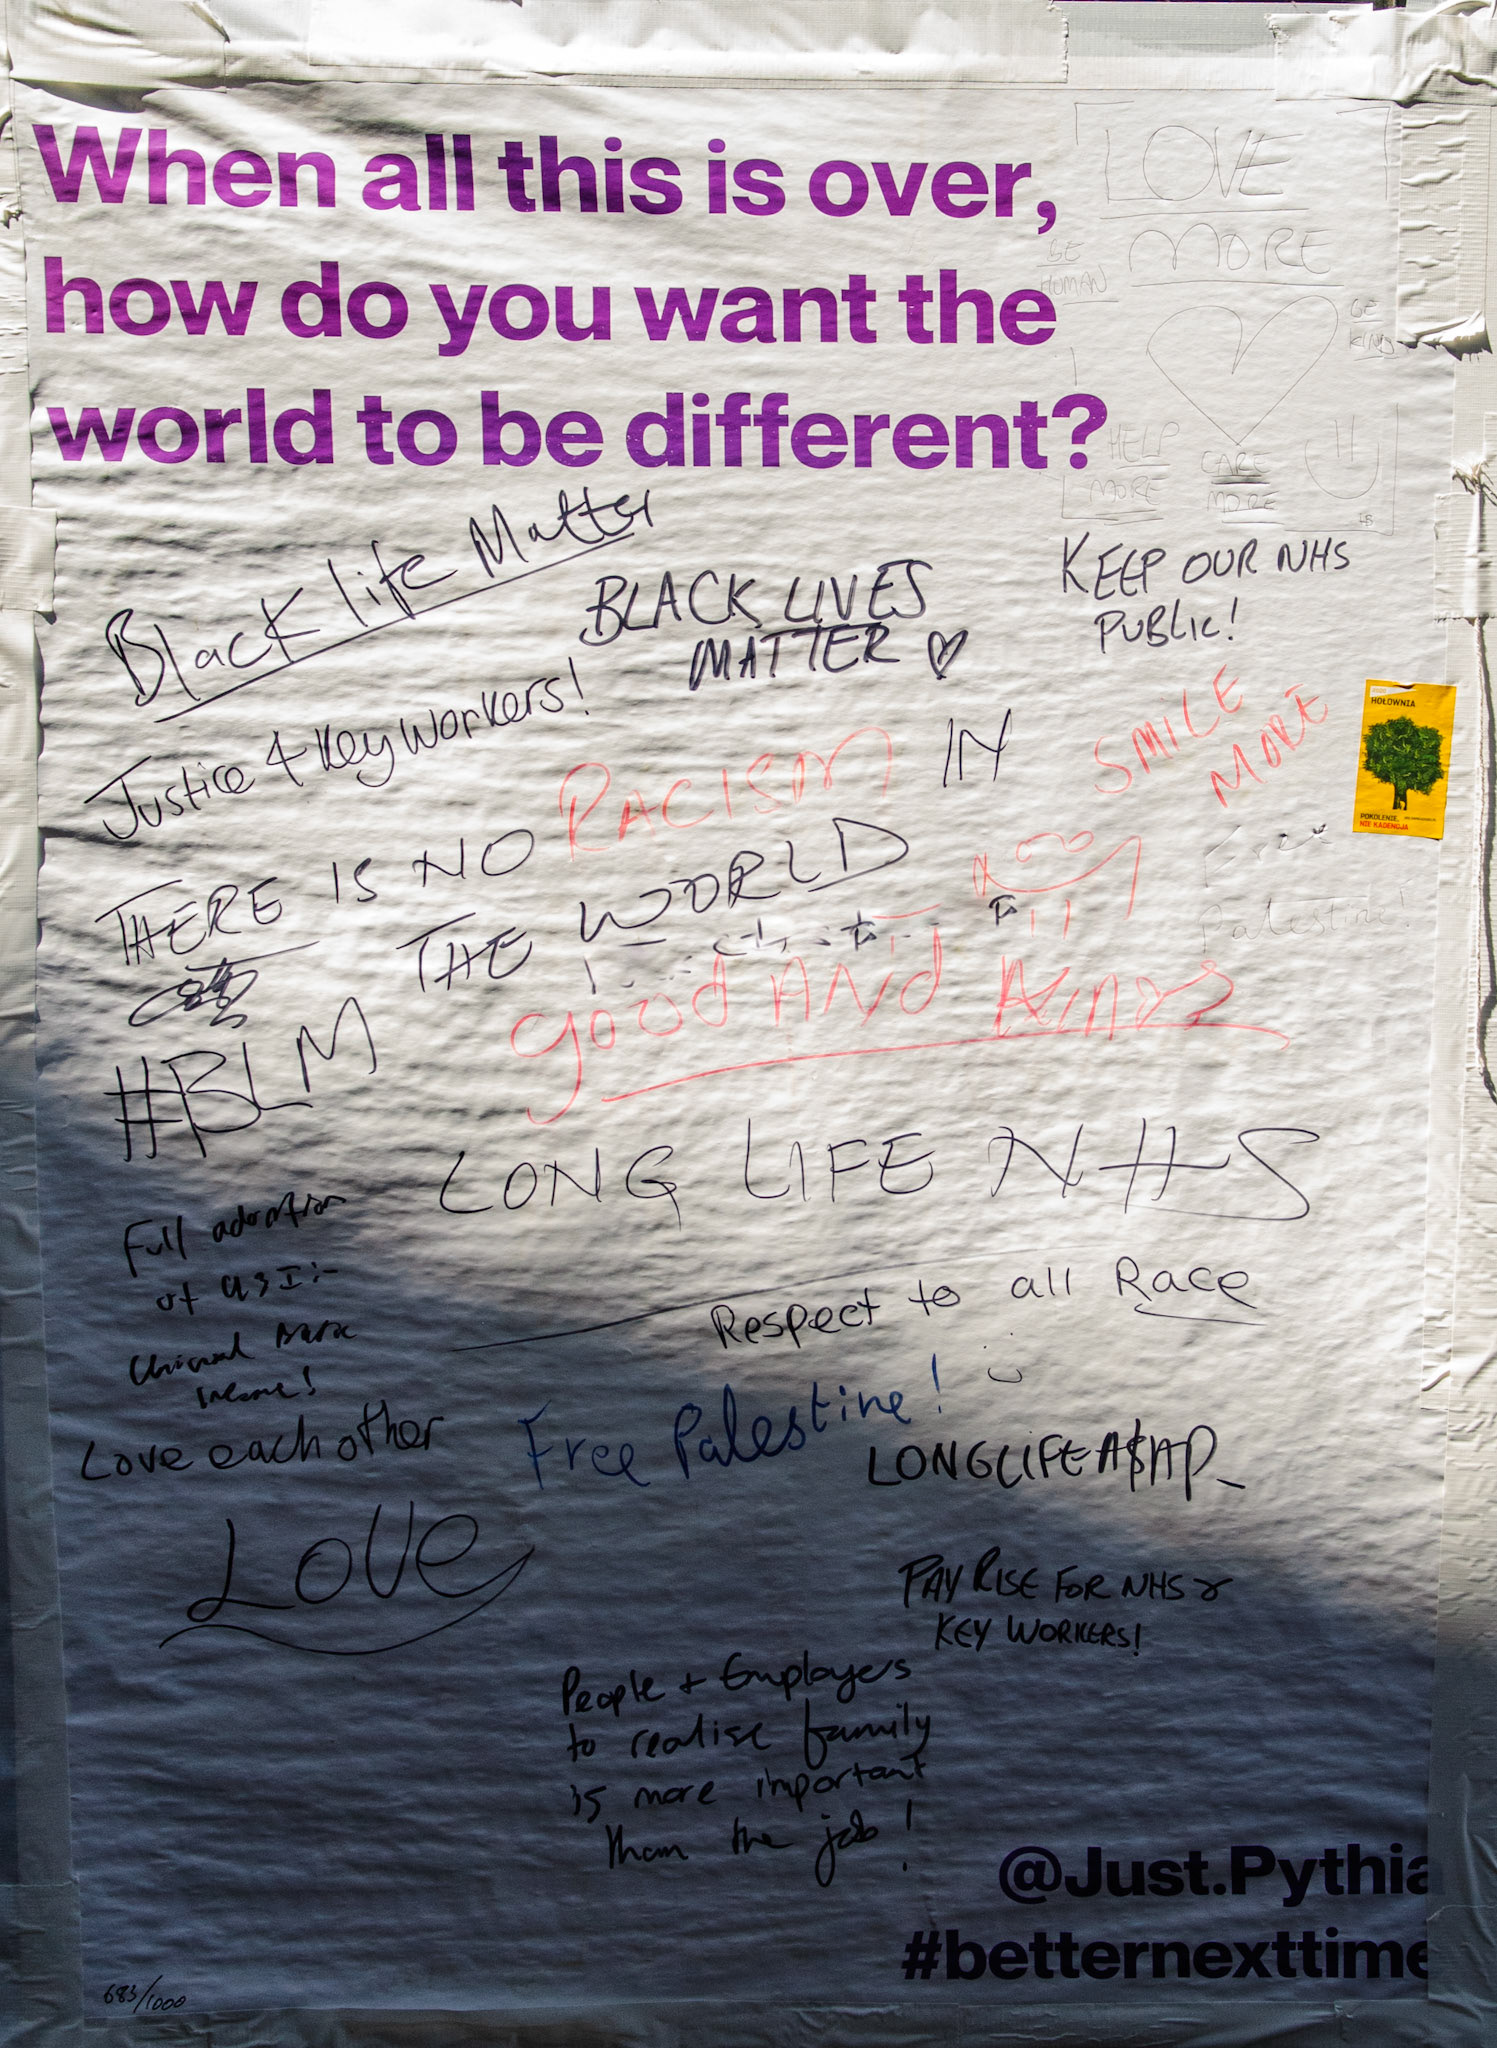 When all this is over,
how do you want the
world to be different?
LOVE
MORE
BE
HUMAN
BE
KIND
HELP
MORE
CARE
MORE
LB
Black life Matter
BLACK LIVES
MATTER
KEEP OUR NHS
PUBLIC!
Justice & Key Workers!
SMILE
MORE
HOŁOWNIA
POKOLENIE,
NIE KADENCJA
THERE IS NO RACISM IN
THE WORLD
Free
Palestine!
good AND
#BLM
LONG LIFE NHS
Full adoption
of
Basic
Income!
Respect to all Race
Love each other
Free Palestine!
LONGLIFEA$AP_
Love
PAY RISE FOR NHS &
KEY WORKERS!
People + Employers
to realise family
is more important
than the job!
@Just.Pythia
#betternexttime
683/1000